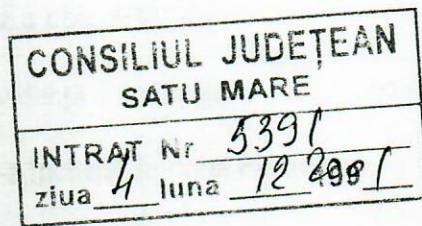 CONSILIUL JUDEȚEAN
SATU MARE
INTRAT Nr 5391
ziua 4 luna 12 2001